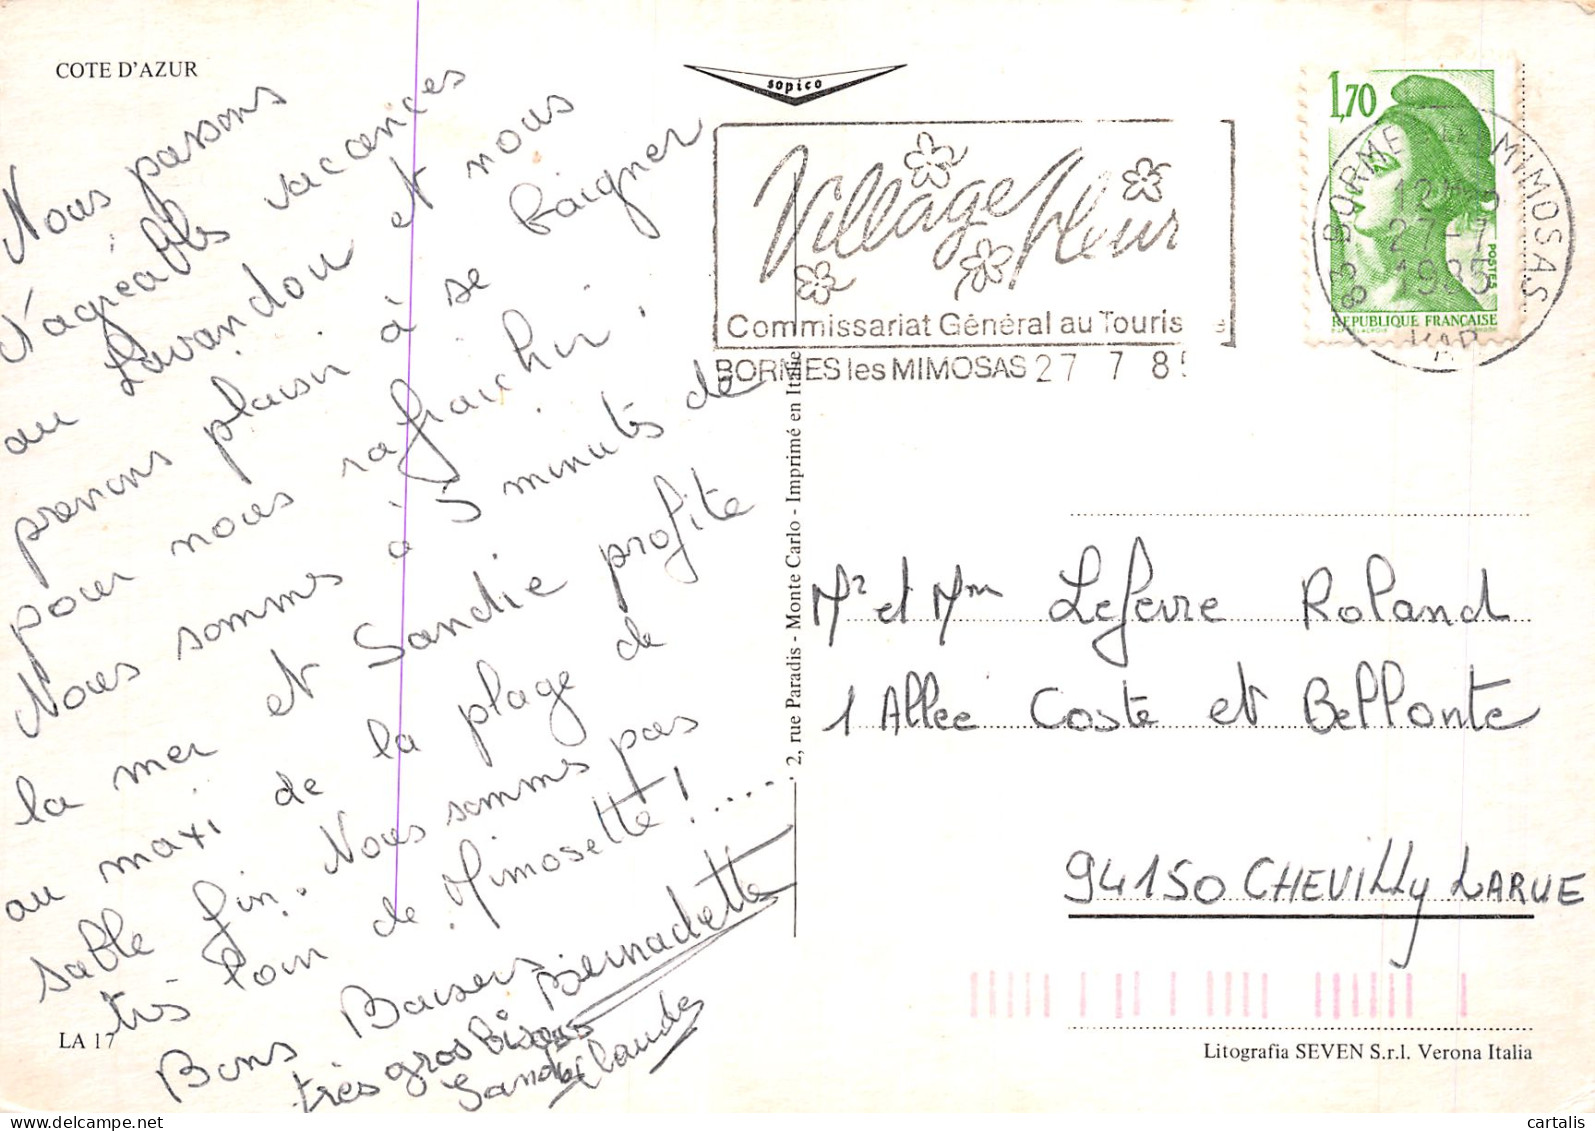 COTE D'AZUR
Nous passons
d'agréables vacances
au Lavandou et nous
prenons plaisir à se baigner
pour nous rafraichir.
Nous sommes à 5 minutes de
la mer et Sandie profite
au maxi de la plage de
sable fin. Nous sommes pas
très loin de Mimosette!....
Bons Baisers Bernadette
très gros bisous Claude
Sandie
LA 17
sopico
Village fleuri
Commissariat Général au Touris e
BORMES les MIMOSAS 27 7 8
1,70
POSTES
REPUBLIQUE FRANÇAISE
83 BORMES LES MIMOSAS
12H
27-7
1985
VAR
2, rue Paradis - Monte Carlo - Imprimé en Italie
Mr et Mm Lefevre Roland
1 Allée Coste et Bellonte
94150 CHEVILLY LARUE
Litografia SEVEN S.r.l. Verona Italia
cartalis